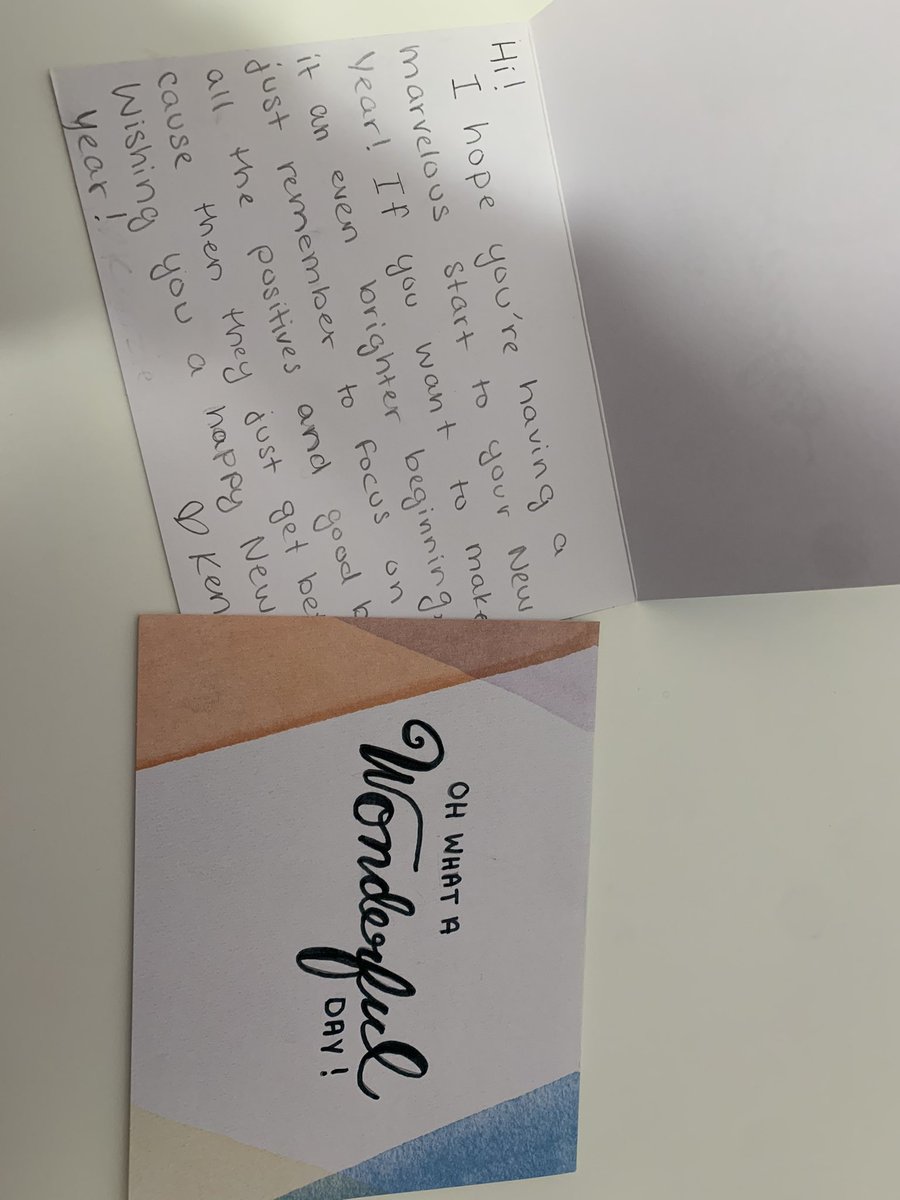 Hi!
I hope you're having a
marvelous start to your New
Year! If you want to make
it an even brighter beginning,
just remember to focus on
all the positives and good
cause then they just get
Wishing you a happy New
Year!
♡ Ken
OH WHAT A
Wonderful
DAY!